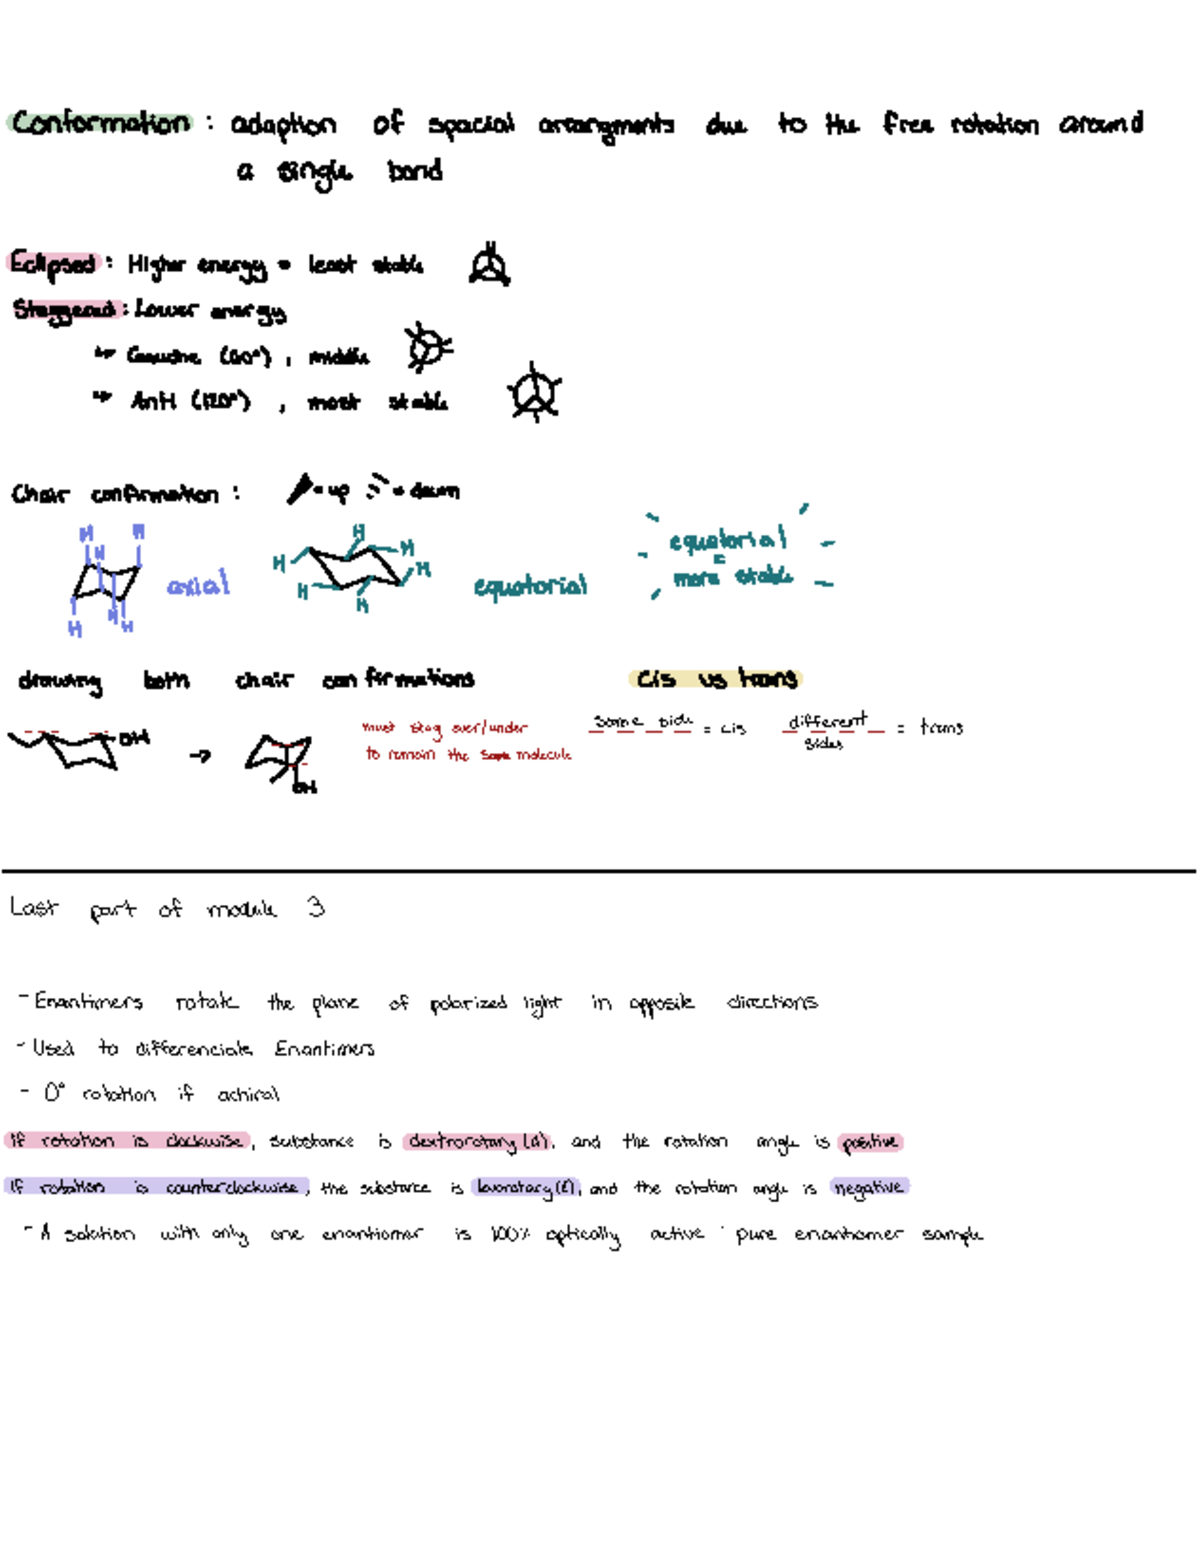 Conformation : adaption of spacial arrangments due to the free rotation around
a single bond
Eclipsed : Higher energy = least stable
Staggered : Lower energy
↳ Gauche (60°) , middle
↳ Anti (120°) , most stable
Chair confirmation : = up = down
H H H H H H axial
H H H H H H equatorial
equatorial
=
more stable
drawing both chair confirmations
cis vs trans
OH → OH
must stay over/under
to remain the same molecule
same side = cis
different sides = trans
Last part of module 3
- Enantimers rotate the plane of polarized light in opposite directions
- Used to differenciate Enantimers
- 0° rotation if achiral
If rotation is clockwise, substance is dextrorotary (d), and the rotation angle is positive
If rotation is counterclockwise, the substance is levorotary (l), and the rotation angle is negative
- A solution with only one enantiomer is 100% optically active pure enantiomer sample